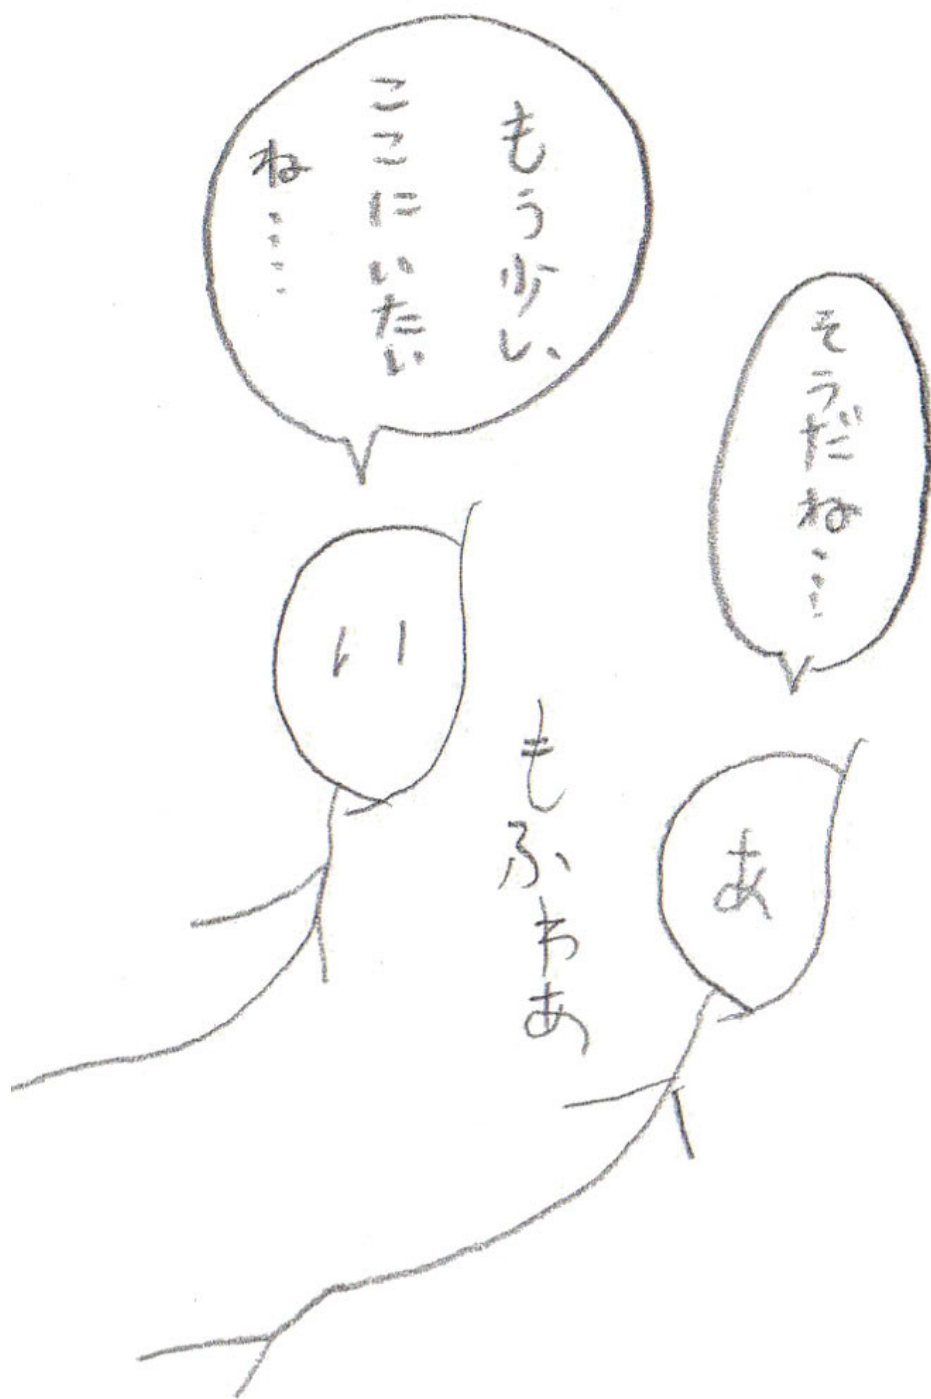 そうだね……
もう少し、
ここにいたい
ね……
あ
もふわあ
い